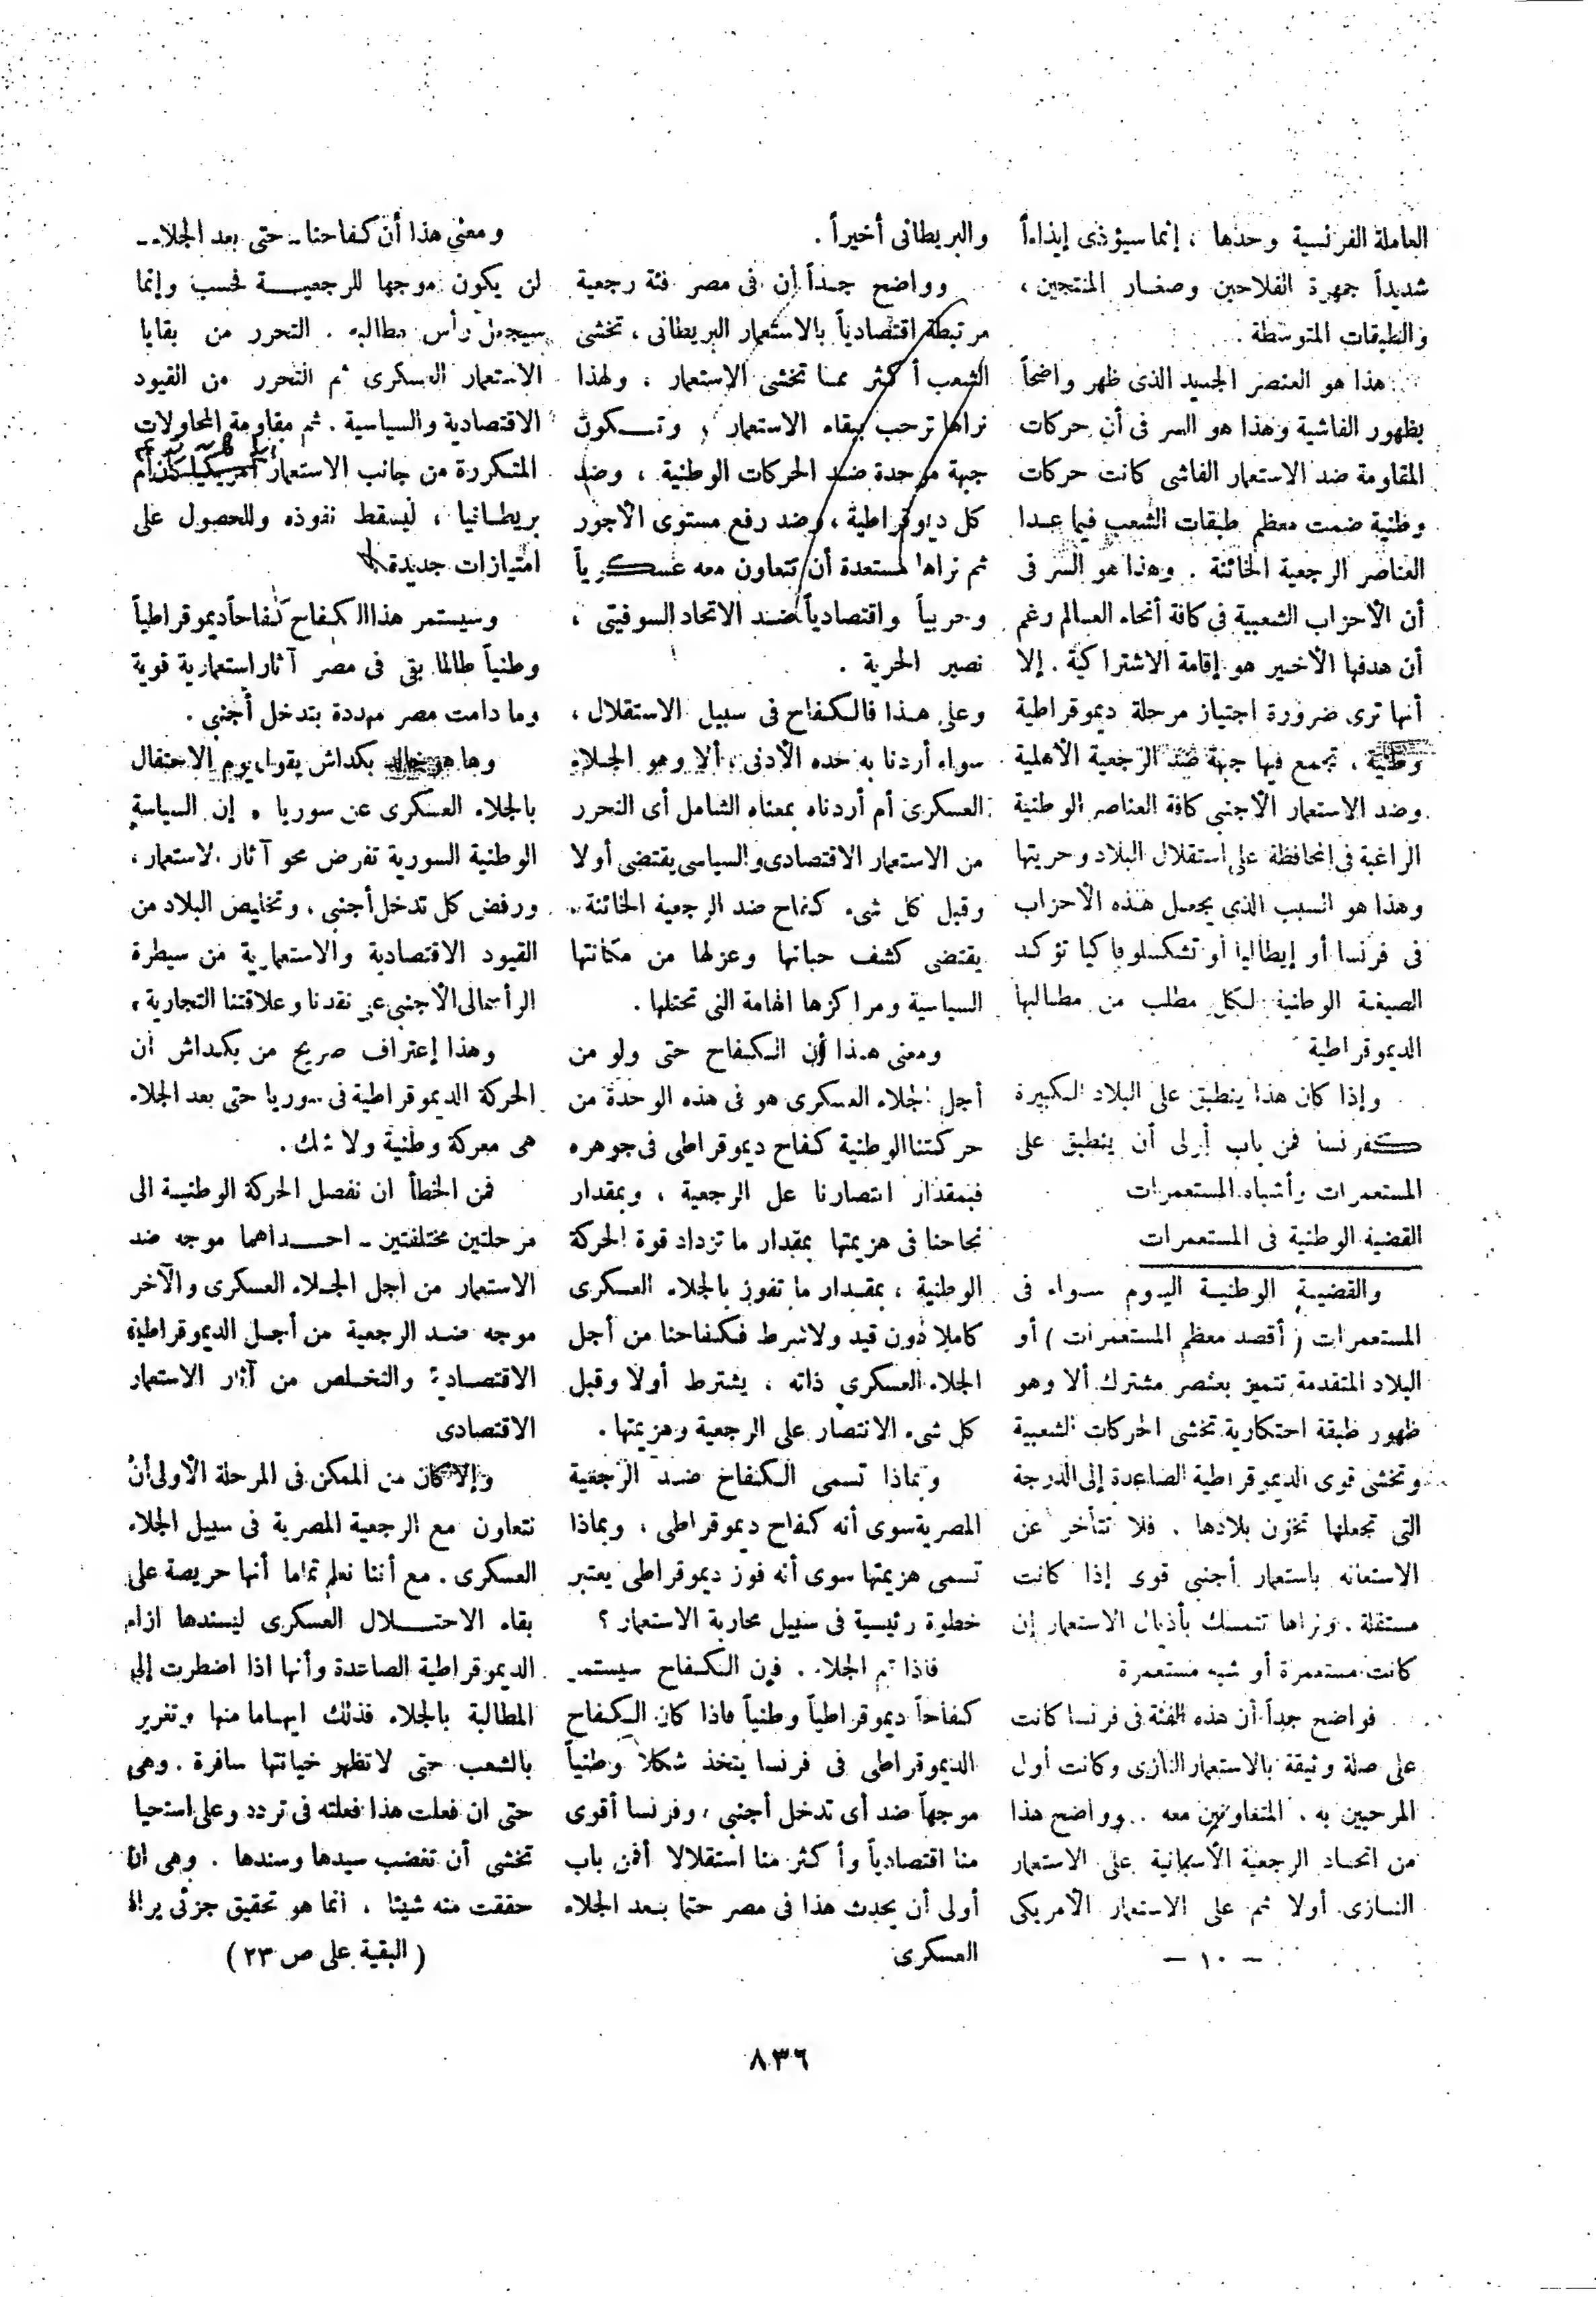 العاملة الفرنسية وحدها ، إنما سيؤذى إيذاءاً
شديداً جمهرة الفلاحين وصغار المنتجين ،
والطبقات المتوسطة .
هذا هو العنصر الجديد الذى ظهر واضحاً
بظهور الفاشية وهذا هو السر فى أن حركات
المقاومة ضد الاستعمار الفاشى كانت حركات
وطنية ضمت معظم طبقات الشعب فيما عدا
العناصر الرجعية الخائنة . وهذا هو السر فى
أن الأحزاب الشعبية فى كافة أنحاء العالم رغم
أن هدفها الأخير هو إقامة الاشتراكية . إلا
أنها ترى ضرورة اجتياز مرحلة ديموقراطية
وطنية ، تجمع فيها جبهة ضد الرجعية الأهلية
وضد الاستعمار الأجنبى كافة العناصر الوطنية
الراغبة فى المحافظة على استقلال البلاد وحريتها
وهذا هو السبب الذى يجعل هذه الأحزاب
فى فرنسا أو إيطاليا أو تشكسلوفاكيا تؤكد
الصيغة الوطنية لكل مطلب من مطالبها
الديموقراطية
وإذا كان هذا ينطبق على البلاد الكبيرة
كفرنسا فمن باب أولى أن ينطبق على
المستعمرات وأشباه المستعمرات
القضية الوطنية فى المستعمرات
والقضية الوطنية اليوم سواء فى
المستعمرات ( أقصد معظم المستعمرات ) أو
البلاد المتقدمة تتميز بعنصر مشترك ألا وهو
ظهور طبقة احتكارية تخشى الحركات الشعبية
وتخشى قوى الديموقراطية الصاعدة إلى الدرجة
التى تجعلها تخون بلادها . فلا تتأخر عن
الاستعانه باستعمار أجنبى قوى إذا كانت
مستقلة . ونراها تتمسك بأذيال الاستعمار إن
كانت مستعمرة أو شبه مستعمرة
فواضح جداً أن هذه الفئة فى فرنسا كانت
على صلة وثيقة بالاستعمار النازى وكانت أول
المرحبين به . المتعاونين معه .. وواضح هذا
من اتحاد الرجعية الأسبانية على الاستعمار
النازى أولا ثم على الاستعمار الأمريكى
— ١٠ —
والبريطانى أخيراً .
وواضح جداً إن فى مصر فئة رجعية
مرتبطة اقتصادياً بالاستعمار البريطانى ، تخشى
الشعب أكثر مما تخشى الاستعمار ، ولهذا
نراها ترحب ببقاء الاستعمار ، وتكون
جبهة موحدة ضد الحركات الوطنية ، وضد
كل ديموقراطية ، وضد رفع مستوى الأجور
ثم نراها مستعدة أن تتعاون معه عسكرياً
وحربياً واقتصادياً ضد الاتحاد السوفيتى ،
نصير الحرية .
وعلى هذا فالكفاح فى سبيل الاستقلال ،
سواء أردنا به حده الأدنى ، ألا وهو الجلاء
العسكرى أم أردناه بمعناه الشامل أى التحرر
من الاستعمار الاقتصادى والسياسى يقتضى أولا
وقبل كل شىء كفاح ضد الرجعية الخائنة .
يقتضى كشف حياتها وعزلها من مكانتها
السياسية ومراكزها الهامة التى تحتلها .
ومعنى هذا أن الكفاح حتى ولو من
أجل الجلاء العسكرى هو فى هذه الوحدة من
حركتنا الوطنية كفاح ديموقراطى فى جوهره
فبمقدار انتصارنا عل الرجعية ، وبمقدار
نجاحنا فى هزيمتها بمقدار ما تزداد قوة الحركة
الوطنية ، بمقدار ما تفوز بالجلاء العسكرى
كاملا دون قيد ولا شرط فكفاحنا من أجل
الجلاء العسكرى ذاته ، يشترط أولا وقبل
كل شىء الانتصار على الرجعية وهزيمتها .
وبماذا تسمى الكفاح ضد الرجعية
المصرية سوى أنه كفاح ديموقراطى ، وبماذا
تسمى هزيمتها سوى أنه فوز ديموقراطى يعتبر
خطوة رئيسية فى سبيل محاربة الاستعمار ؟
فاذا تم الجلاء . فإن الكفاح سيستمر
كفاحاً ديموقراطياً وطنياً فاذا كان الكفاح
الديموقراطى فى فرنسا يتخذ شكلا وطنياً
موجهاً ضد أى تدخل أجنبى ، وفرنسا أقوى
منا اقتصادياً وأكثر منا استقلالا أفمن باب
أولى أن يحدث هذا فى مصر حتما بعد الجلاء
العسكرى
ومعنى هذا أن كفاحنا - حتى بعد الجلاء -
لن يكون موجها للرجعية فحسب وإنما
سيجعل رأس مطالبه . التحرر من بقايا
الاستعمار العسكرى ثم التحرر من القيود
الاقتصادية والسياسية . ثم مقاومة المحاولات
المتكررة من جانب الاستعمار
بريطانيا ، ليسقط نفوذه وللحصول على
امتيازات جديدة
وسيستمر هذا الكفاح كفاحاً ديموقراطياً
وطنياً طالما بقى فى مصر آثار استعمارية قوية
وما دامت مصر مهددة بتدخل أجنبى .
وها هو خالد بكداش يقول يوم الاحتفال
بالجلاء العسكرى عن سوريا « إن السياسة
الوطنية السورية تفرض محو آثار الاستعمار ،
ورفض كل تدخل أجنبى ، وتخليص البلاد من
القيود الاقتصادية والاستعمارية من سيطرة
الرأسمالى الأجنبى على نقدنا وعلاقتنا التجارية »
وهذا إعتراف صريح من بكداش ان
الحركة الديموقراطية فى سوريا حتى بعد الجلاء
هى معركة وطنية ولا شك .
فمن الخطأ ان نفصل الحركة الوطنية الى
مرحلتين مختلفتين - احداهما موجه ضد
الاستعمار من اجل الجلاء العسكرى والآخر
موجه ضد الرجعية من أجل الديموقراطية
الاقتصادية والتخلص من آثار الاستعمار
الاقتصادى
وإلا كان من الممكن فى المرحلة الأولى أن
نتعاون مع الرجعية المصرية فى سبيل الجلاء
العسكرى . مع أننا نعلم تماما أنها حريصة على
بقاء الاحتلال العسكرى ليسندها ازاء
الديموقراطية الصاعدة وأنها اذا اضطرت إلى
المطالبة بالجلاء فذلك ايهاما منها وتغرير
بالشعب حتى لا تظهر خيانتها سافرة . وهى
حتى ان فعلت هذا فعلته فى تردد وعلى استحيا
تخشى أن تغضب سيدها وسندها . وهى ان
حققت منه شيئا ، انما هو تحقيق جزئى يراد
( البقية على ص ٢٣ )
٨٣٦